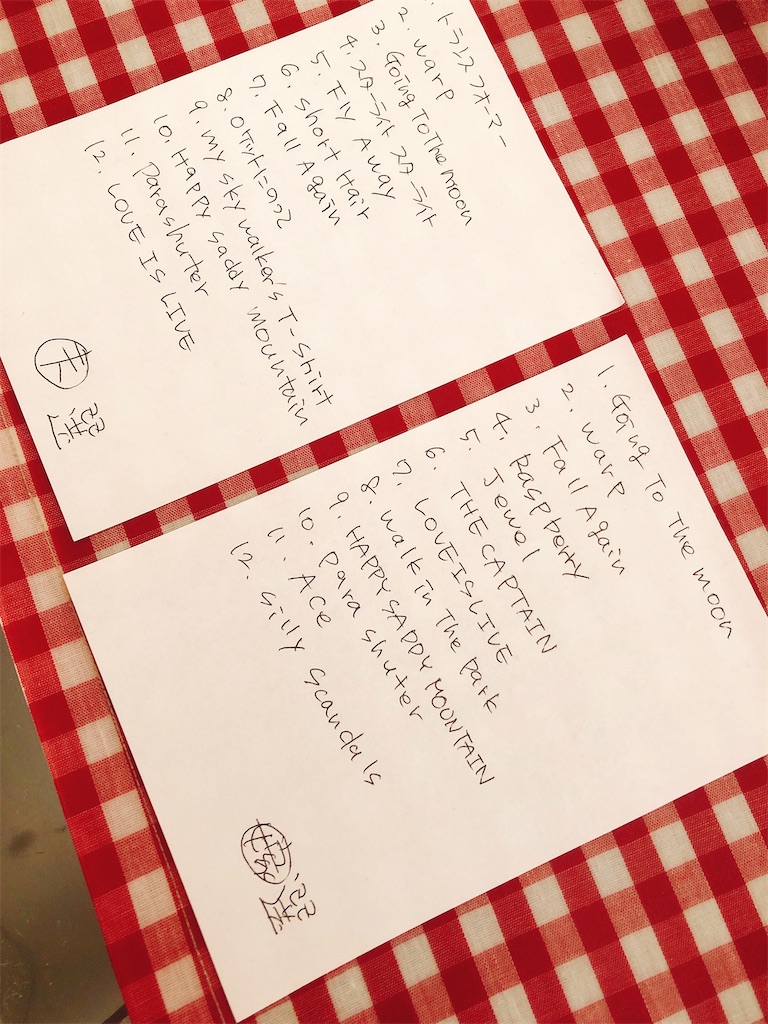 1. トランスフォーマー
2. warp
3. Going To The moon
4. スターライト スターライト
5. Fly Away
6. short Hair
7. Fall Again
8. ロケットにのって
9. my sky walker's T-shirt
10. Happy saddy mountain
11. Parashuter
12. LOVE IS LIVE
選
1. Going To The moon
2. warp
3. Fall Again
4. Raspberry
5. Jewel
6. THE CAPTAIN
7. LOVE IS LIVE
8. walk in The park
9. HAPPY SADDY MOUNTAIN
10. Para shuter
11. Ace
12. Silly Scandals
選